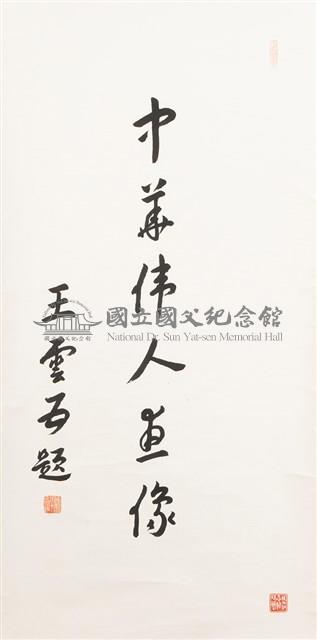 中華偉人畫像
王雲五題
國立國父紀念館
National Dr. Sun Yat-sen Memorial Hall